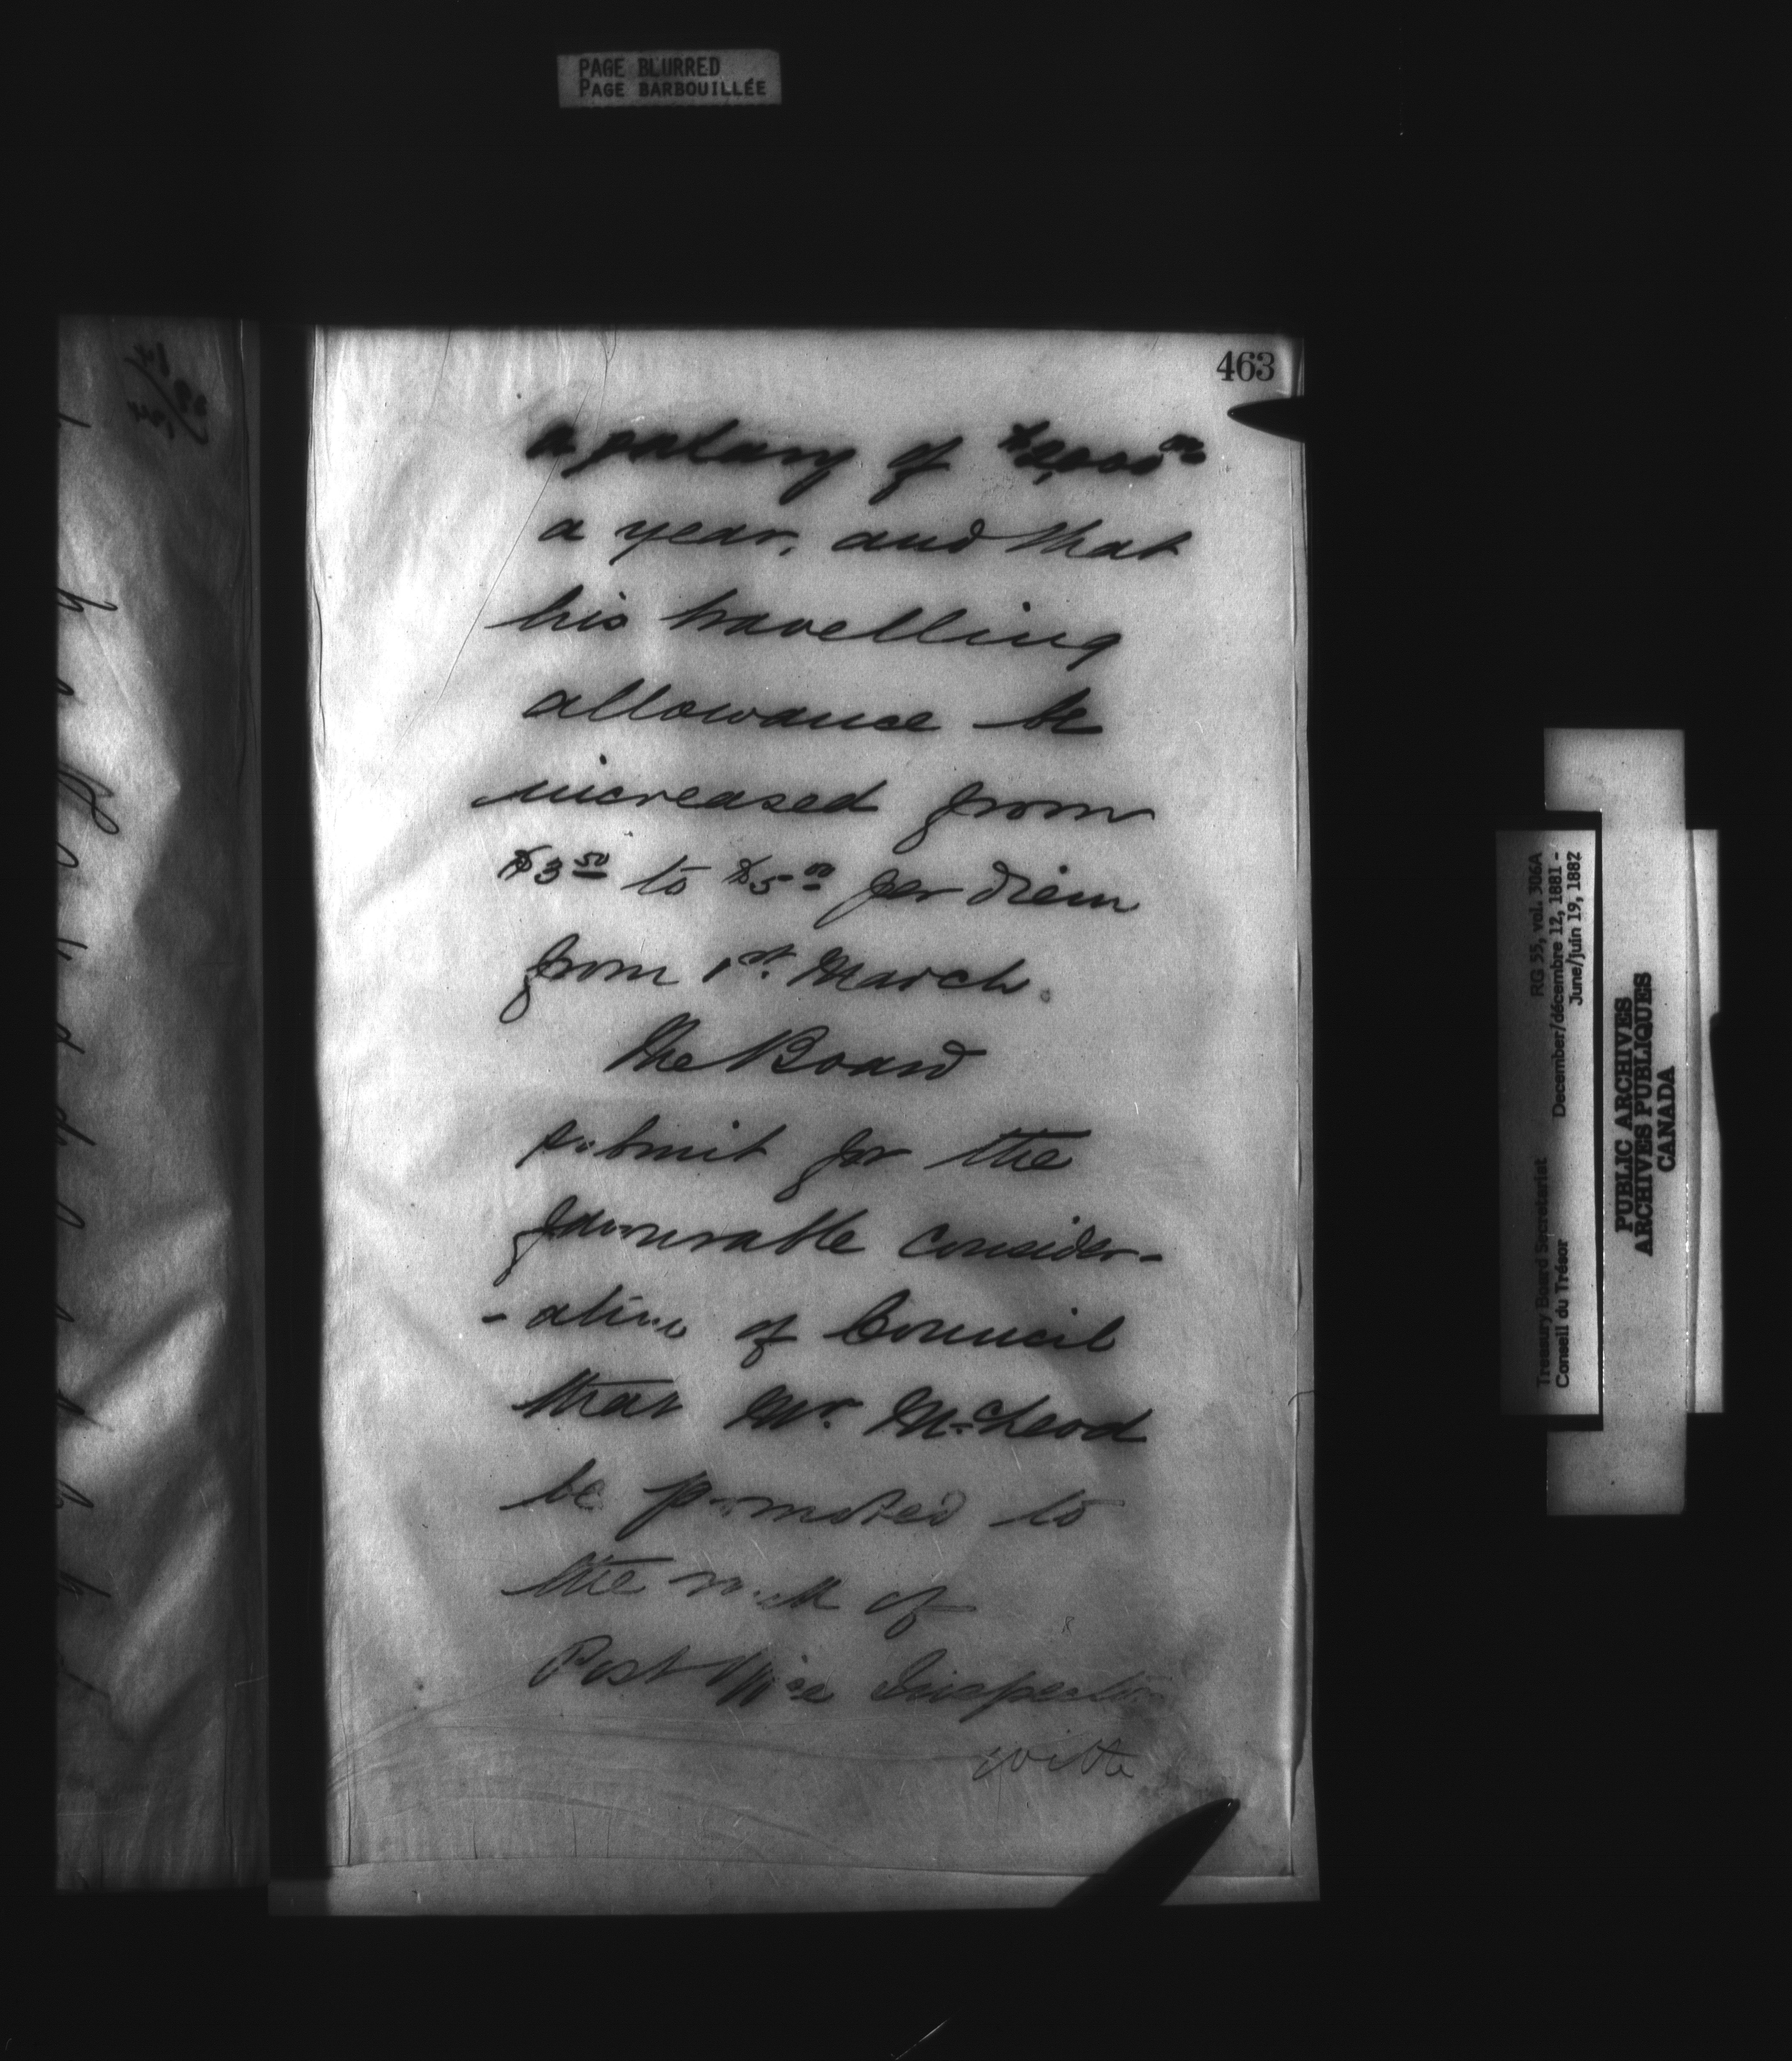 PAGE BLURRED
PAGE BARBOUILLÉE
463
a salary of $2,000 00
a year, and that
his travelling
allowance be
increased from
$3 50 to $5 00 per diem
from 1st. March.
The Board
submit for the
favourable consider-
-ation of Council
that Mr. McLeod
be promoted to
the rank of
Post Office Inspector
with
RG 55, vol. 306A
December/décembre 12, 1881 -
June/juin 19, 1882
Treasury Board Secretariat
Conseil du Trésor
PUBLIC ARCHIVES
ARCHIVES PUBLIQUES
CANADA